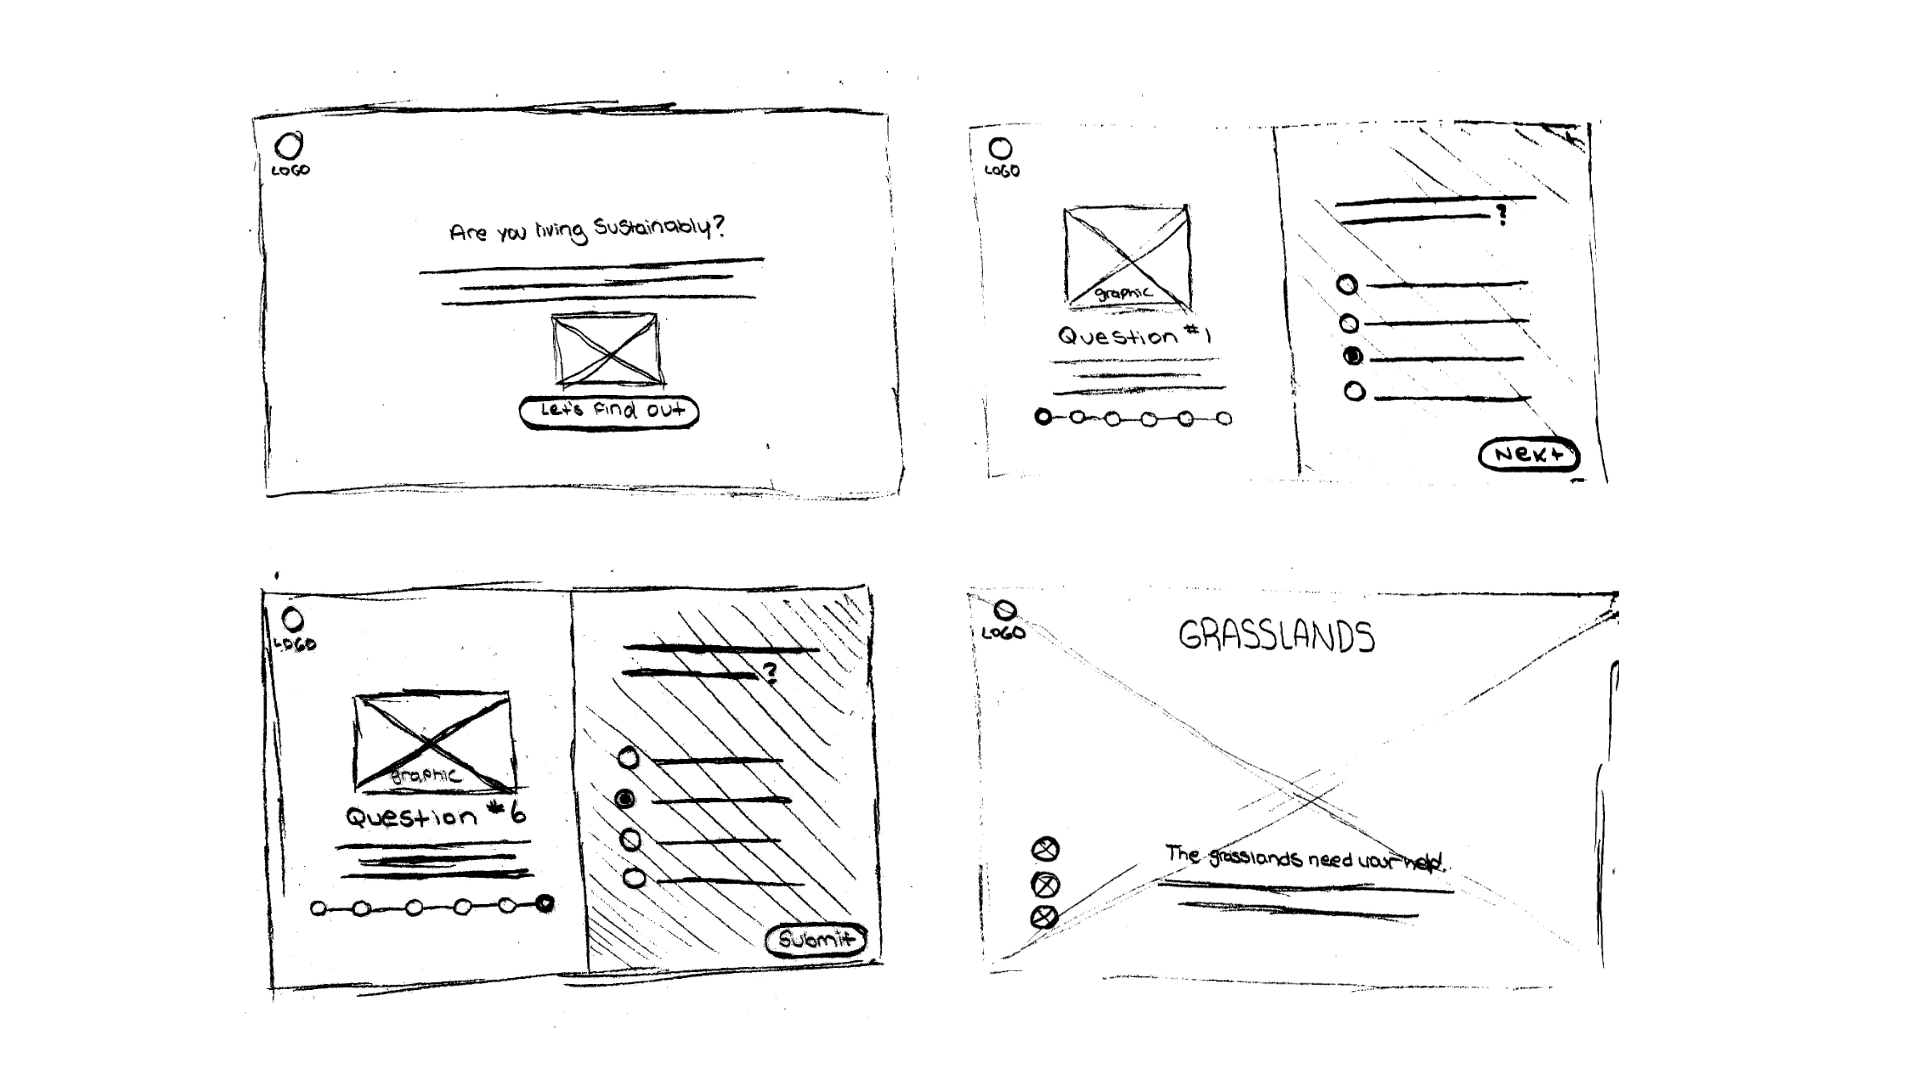 LOGO
Are you living Sustainably?
Let's find out
LOGO
graphic
Question #1
?
Next
LOGO
graphic
Question #6
?
Submit
LOGO
GRASSLANDS
The grasslands need your help.